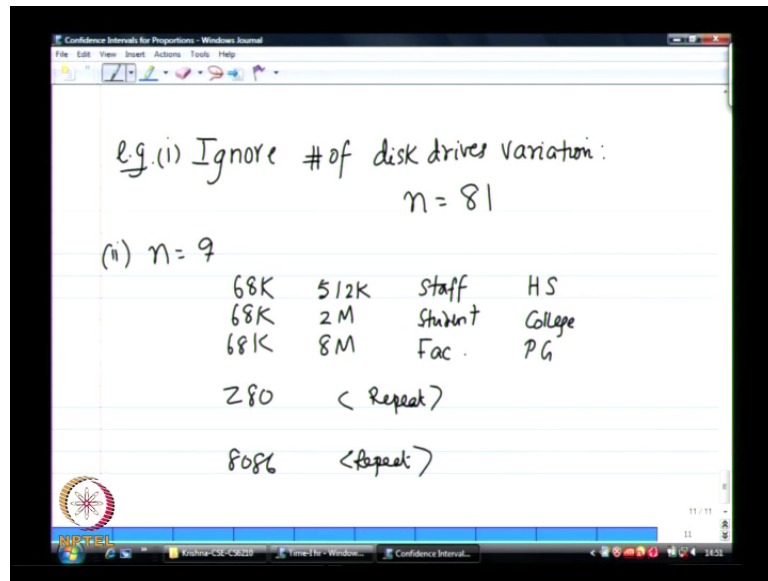 Confidence Intervals for Proportions - Windows Journal
File Edit View Insert Actions Tools Help
e.g. (i) Ignore # of disk drives variation:
n = 81
(ii) n = 9
68K 512K Staff HS
68K 2M Student College
68K 8M Fac. PG
Z80 < Repeat >
8086 < Repeat >
11 / 11
11
NPTEL
Krishna-CSE-CS6210 Time-1 hr - Window... Confidence Interval... 14:51